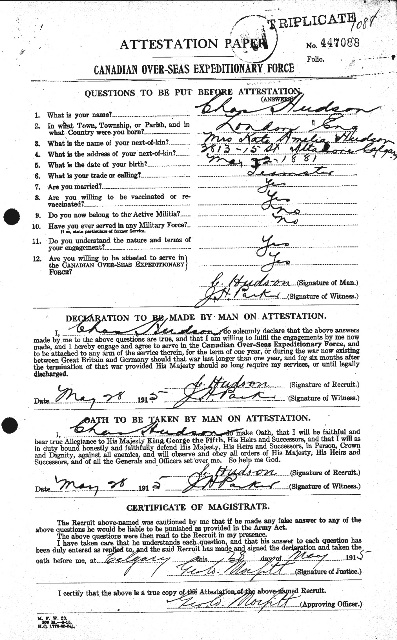 TRIPLICATE
1088
ATTESTATION PAPER
No. 447088
Folio.
CANADIAN OVER-SEAS EXPEDITIONARY FORCE
QUESTIONS TO BE PUT BEFORE ATTESTATION.
(ANSWERS)
1. What is your name? Chas Hudson
2. In what Town, Township, or Parish, and in what Country were you born? London Eng
3. What is the name of your next-of-kin? Mrs Kate Amelia Hudson
4. What is the address of your next-of-kin? 2813-15 St Calgary
5. What is the date of your birth? May 22-1881
6. What is your trade or calling? Teamster
7. Are you married? Yes
8. Are you willing to be vaccinated or re-vaccinated? Yes
9. Do you now belong to the Active Militia? No
10. Have you ever served in any Military Force? No
If so, state particulars of former Service.
11. Do you understand the nature and terms of your engagement? Yes
12. Are you willing to be attested to serve in the CANADIAN OVER-SEAS EXPEDITIONARY FORCE? Yes
C Hudson (Signature of Man).
J H Parks (Signature of Witness).
DECLARATION TO BE MADE BY MAN ON ATTESTATION.
I, Chas Hudson, do solemnly declare that the above answers
made by me to the above questions are true, and that I am willing to fulfil the engagements by me now
made, and I hereby engage and agree to serve in the Canadian Over-Seas Expeditionary Force, and
to be attached to any arm of the service therein, for the term of one year, or during the war now existing
between Great Britain and Germany should that war last longer than one year, and for six months after
the termination of that war provided His Majesty should so long require my services, or until legally
discharged.
C Hudson (Signature of Recruit)
Date May 28 1915 J H Parks (Signature of Witness)
OATH TO BE TAKEN BY MAN ON ATTESTATION.
I, Chas Hudson, do make Oath, that I will be faithful and
bear true Allegiance to His Majesty King George the Fifth, His Heirs and Successors, and that I will as
in duty bound honestly and faithfully defend His Majesty, His Heirs and Successors, in Person, Crown
and Dignity, against all enemies, and will observe and obey all orders of His Majesty, His Heirs and
Successors, and of all the Generals and Officers set over me. So help me God.
C Hudson (Signature of Recruit)
Date May 28 1915 J H Parks (Signature of Witness)
CERTIFICATE OF MAGISTRATE.
The Recruit above-named was cautioned by me that if he made any false answer to any of the
above questions he would be liable to be punished as provided in the Army Act.
The above questions were then read to the Recruit in my presence.
I have taken care that he understands each question, and that his answer to each question has
been duly entered as replied to, and the said Recruit has made and signed the declaration and taken the
oath before me, at Calgary this 28 day of May 1915
Geo S. Morfitt (Signature of Justice)
I certify that the above is a true copy of the Attestation of the above-named Recruit.
Geo S. Morfitt (Approving Officer)